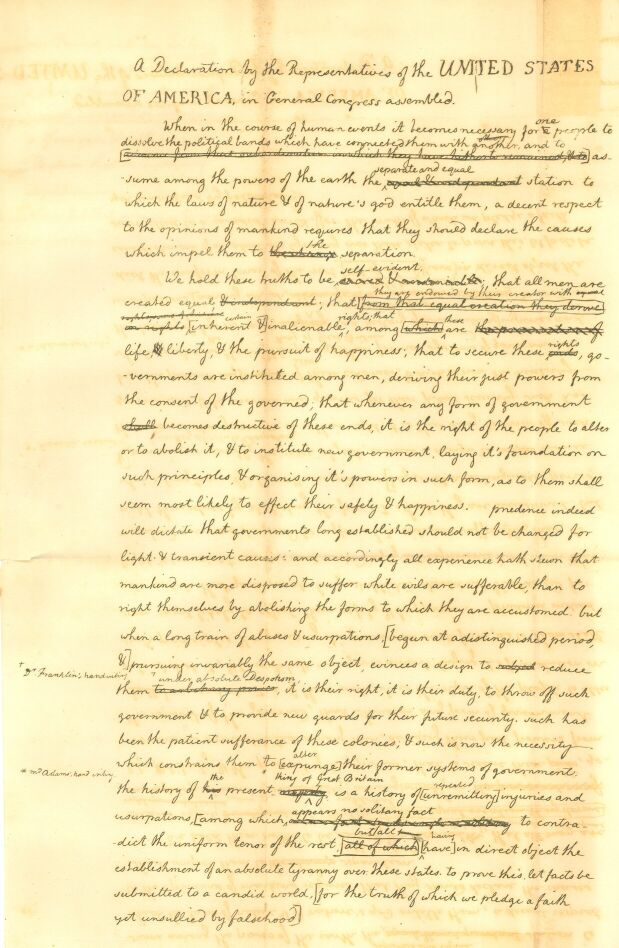 A Declaration by the Representatives of the UNITED STATES
OF AMERICA, in General Congress assembled.
When in the course of human events it becomes necessary for a one people to
dissolve the political bands which have connected them with another, and to
as-
separate and equal
-sume among the powers of the earth the equal & independant station to
which the laws of nature & of nature's god entitle them, a decent respect
to the opinions of mankind requires that they should declare the causes
which impel them to the change the separation.
self-evident,
We hold these truths to be sacred & undeniable; that all men are
they are endowed by their creator with
created equal & independant; that [from that equal creation they derive
certain rights; that these
[inherent & inalienable, among [which] are the preservation of
life, & liberty, & the pursuit of happiness; that to secure these ends rights, go-
-vernments are instituted among men, deriving their just powers from
the consent of the governed; that whenever any form of government
shall becomes destructive of these ends, it is the right of the people to alter
or to abolish it, & to institute new government, laying it's foundation on
such principles & organising it's powers in such form, as to them shall
seem most likely to effect their safety & happiness. prudence indeed
will dictate that governments long established should not be changed for
light & transient causes: and accordingly all experience hath shewn that
mankind are more disposed to suffer while evils are sufferable, than to
right themselves by abolishing the forms to which they are accustomed. but
when a long train of abuses & usurpations, [begun at a distinguished period,
&] pursuing invariably the same object, evinces a design to subject reduce
† Dr. Franklin's handwriting
† under absolute Despotism
them to arbitrary power, it is their right, it is their duty, to throw off such
government & to provide new guards for their future security. such has
been the patient sufferance of these colonies; & such is now the necessity
alter
which constrains them to [expunge] their former systems of government.
* mr Adams' hand writing
the king of Great Britain repeated
the history of his present majesty is a history of [unremitting] injuries and
appears no solitary fact
usurpations, [among which, to contra-
but all having
-dict the uniform tenor of the rest, [all of which] [have] in direct object the
establishment of an absolute tyranny over these states. to prove this, let facts be
submitted to a candid world, [for the truth of which we pledge a faith
yet unsullied by falsehood]